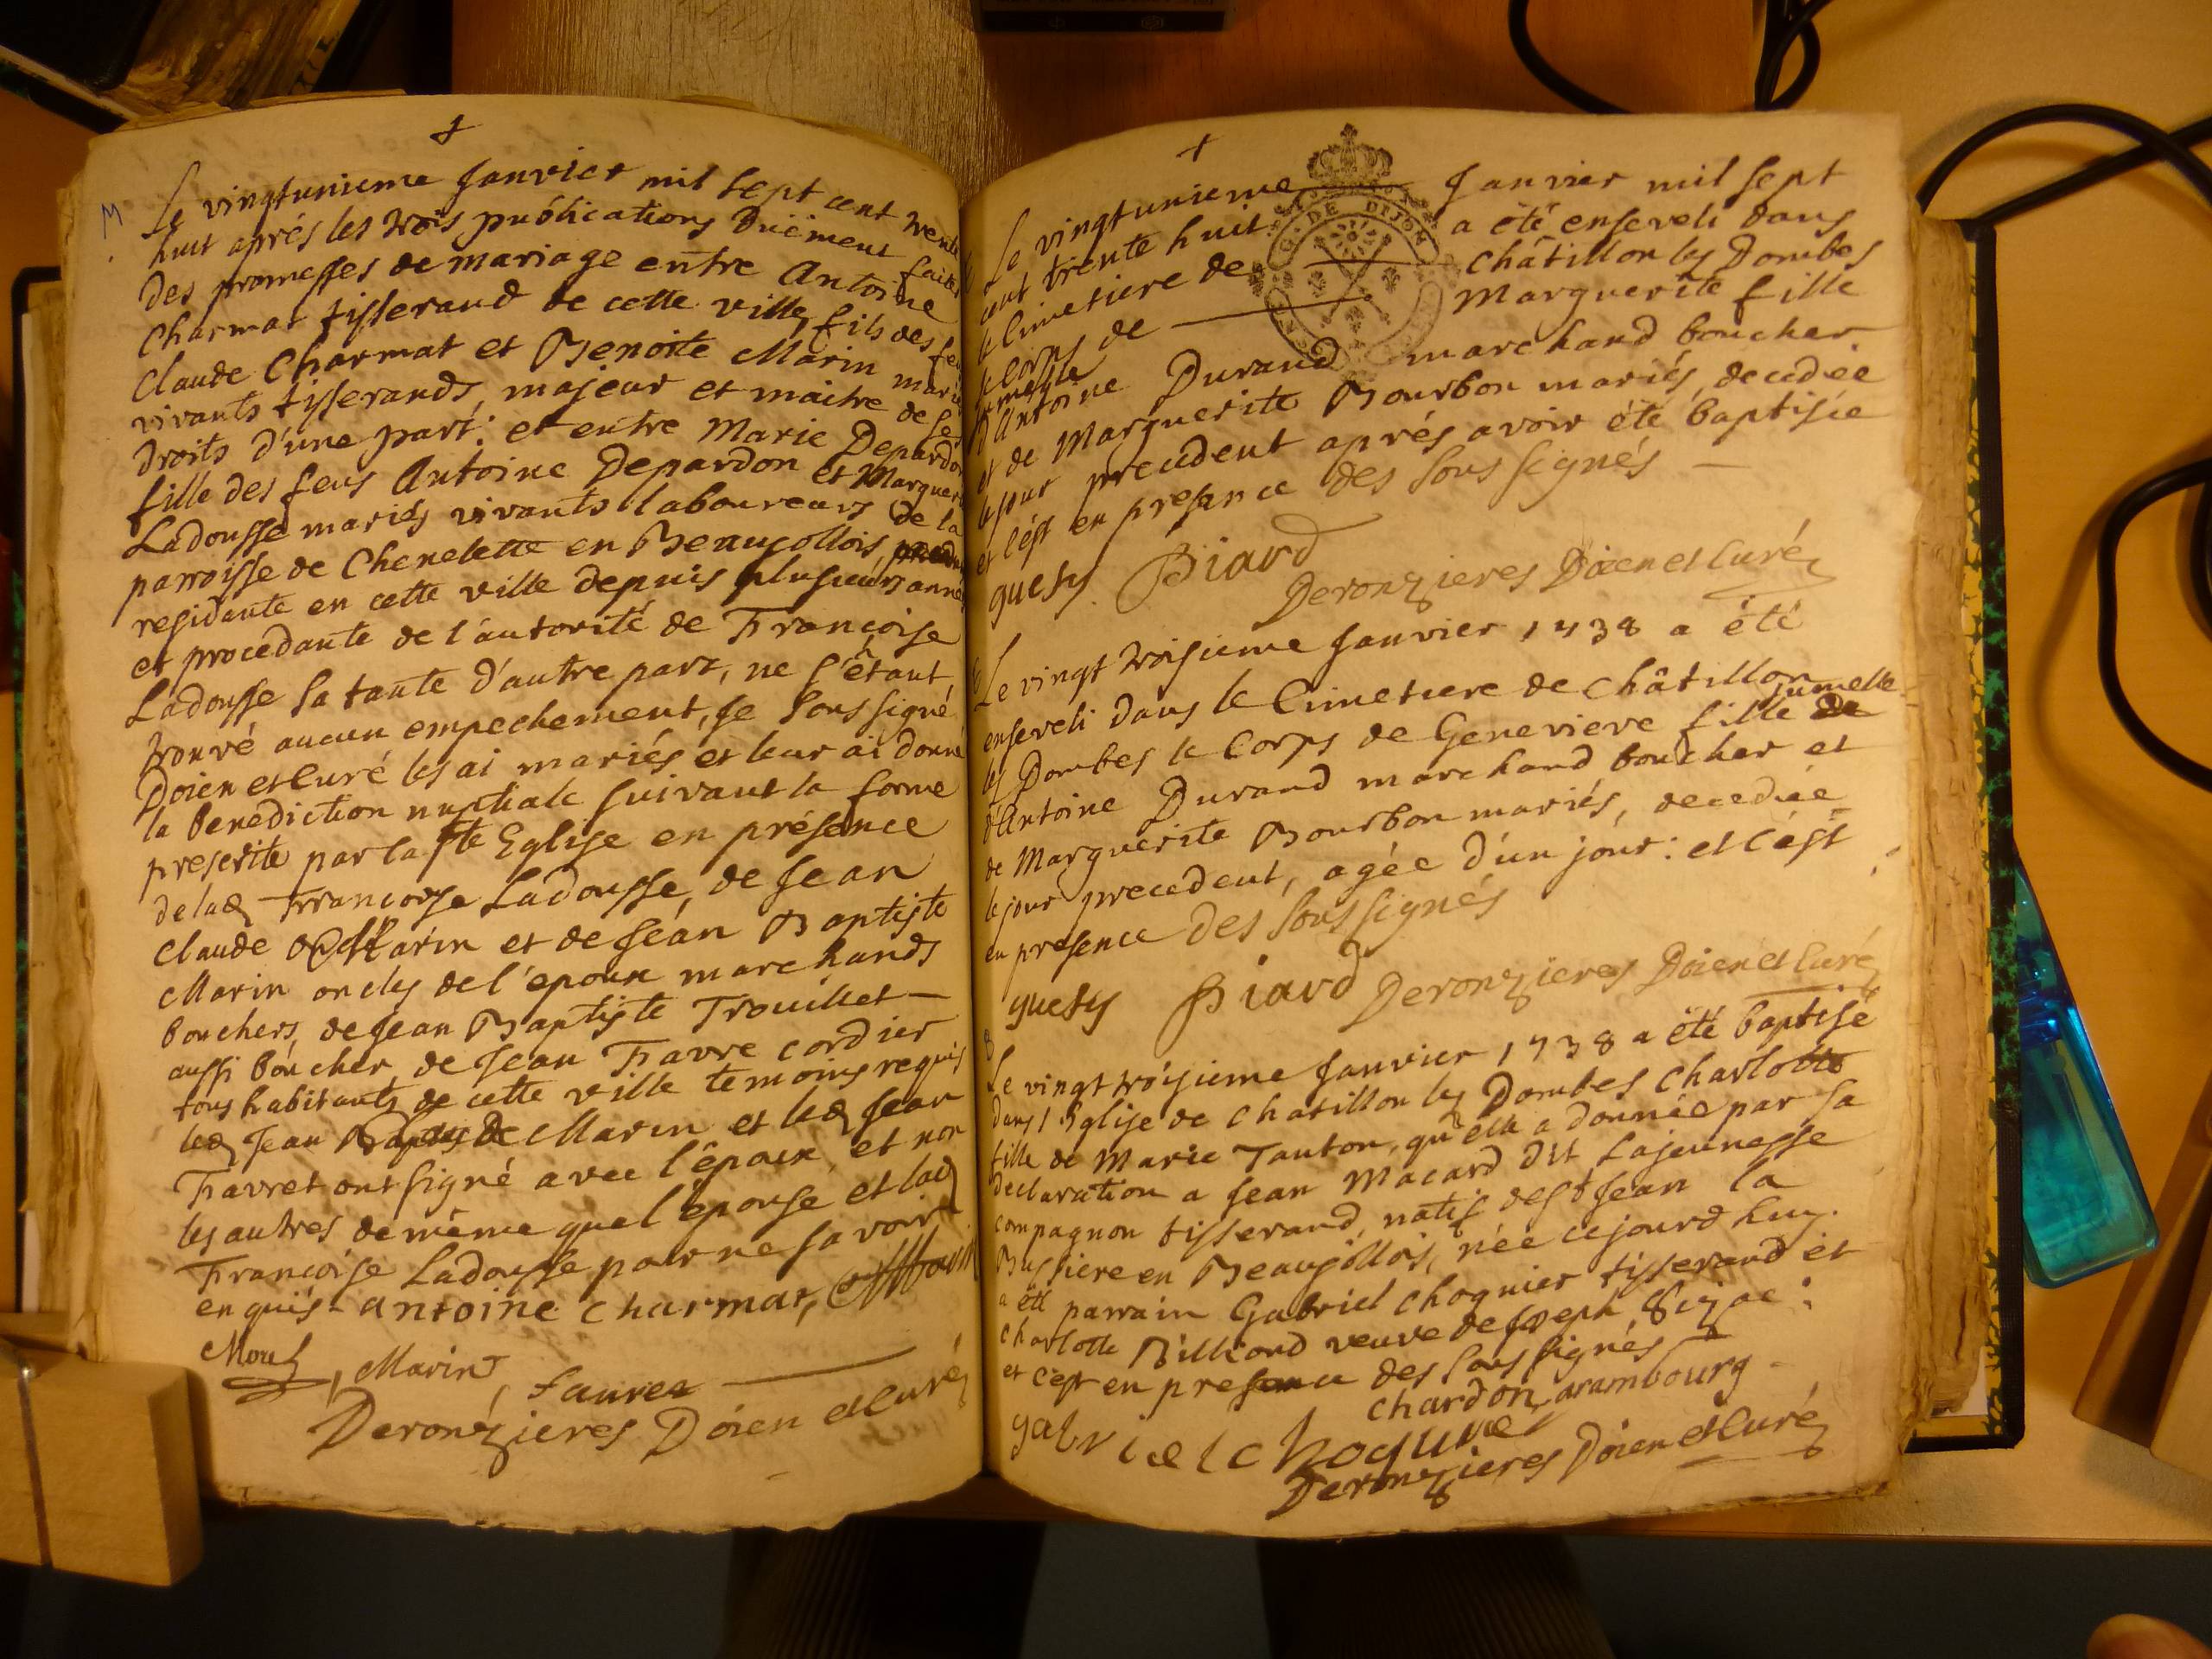 Le vingtunieme Janvier mil sept cent trente
huit aprés les trois publications düement faites
des promesses de mariage entre Antoine
Charmat tisserand de cette ville, fils des feu
Claude Charmat et Benoite Marin mariés
vivants tisserands, majeur et maitre de ses
droits d'une part: et entre Marie Depardon
fille des feus Antoine Depardon et Marguerite
Ladousse mariés vivants laboureurs de la
parroisse de Chenelette en Beaujollois,
residante en cette ville depuis plusieurs années
et procedante de l'autorité de Françoise
Ladousse sa tante d'autre part, ne s'étant
trouvé aucun empechement, Je soussigné
Doien et Curé les ai mariés et leur ai donné
la benediction nuptiale suivant la forme
prescrite par la ste Eglise en présence
de lad. Francoise Ladousse, de Jean
Claude Marin et de Jean Baptiste
Marin oncles de l'epoux marchands
bouchers, de Jean Baptiste Trouillet —
aussi boucher, de Jean Favre cordier
tous habitants de cette ville temoins requis
led. Jean Marin et led. Jean
Favret ont signé avec l'époux, et non
les autres de même que l'epouse et lad.
Françoise Ladousse pour ne savoir
enquis - antoine charmat,
, Marin,
faures
Deronzieres Doien et Curé
Le vingtunieme Janvier mil sept
cent trente huit a été enseveli dans
le Cimetiere de Châtillon les Dombes
le corps de Marguerite fille
jumelle
d'Antoine Durand marchand boucher
et de Marguerite Bourbon mariés, decedée
le jour precedent aprés avoir été baptisée
et c'est en presence des soussignés —
guesty Biard
Deronzieres Doien et Curé
G. DE DIJON
Le vingt troisieme Janvier 1738 a été
enseveli dans le Cimetiere de Châtillon
jumelle
les Dombes le Corps de Genevieve fille
d'Antoine Durand marchand boucher et
de Marguerite Bourbon mariés, decedée
le jour precedent, agée d'un jour: et c'est
en presence des soussignés
guesty Biard Deronzieres Doien et Curé
B
Le vingt troisieme Janvier 1738 a été baptisé
dans l'Eglise de Chatillon les Dombes Charlotte
fille de Marie Tauton, qu'elle a donnée par sa
declaration a Jean Macard dit Lajeunesse
compagnon tisserand, natif de St Jean la
Bussiere en Beaujollois, née cejourd huy.
a été parrain Gabriel Choquier tisserand et
charlotte Billiiond veuve de Joseph :
et c'est en presence des soussignés
chardon, arambourg
gabriel choquier
Deronzieres Doien et Curé